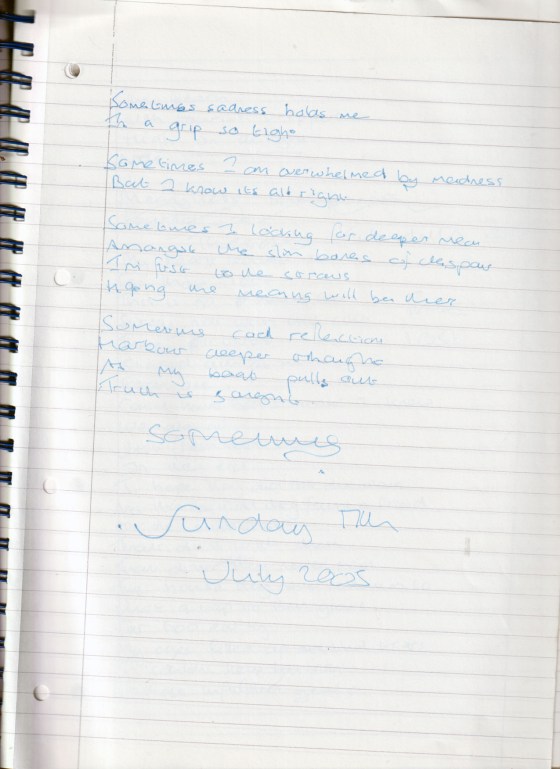 Sometimes sadness holds me
In a grip so tight
Sometimes I am overwhelmed by madness
But I know its all right
Sometimes I looking for deeper mean
Amongst the slim bones of despair
I'm first to the straws
Hoping the meaning will be there
Sometimes cool reflection
Harbour deeper thought
As my boat pulls out
Truth is sought
Sometimes
Sunday 17th
July 2005